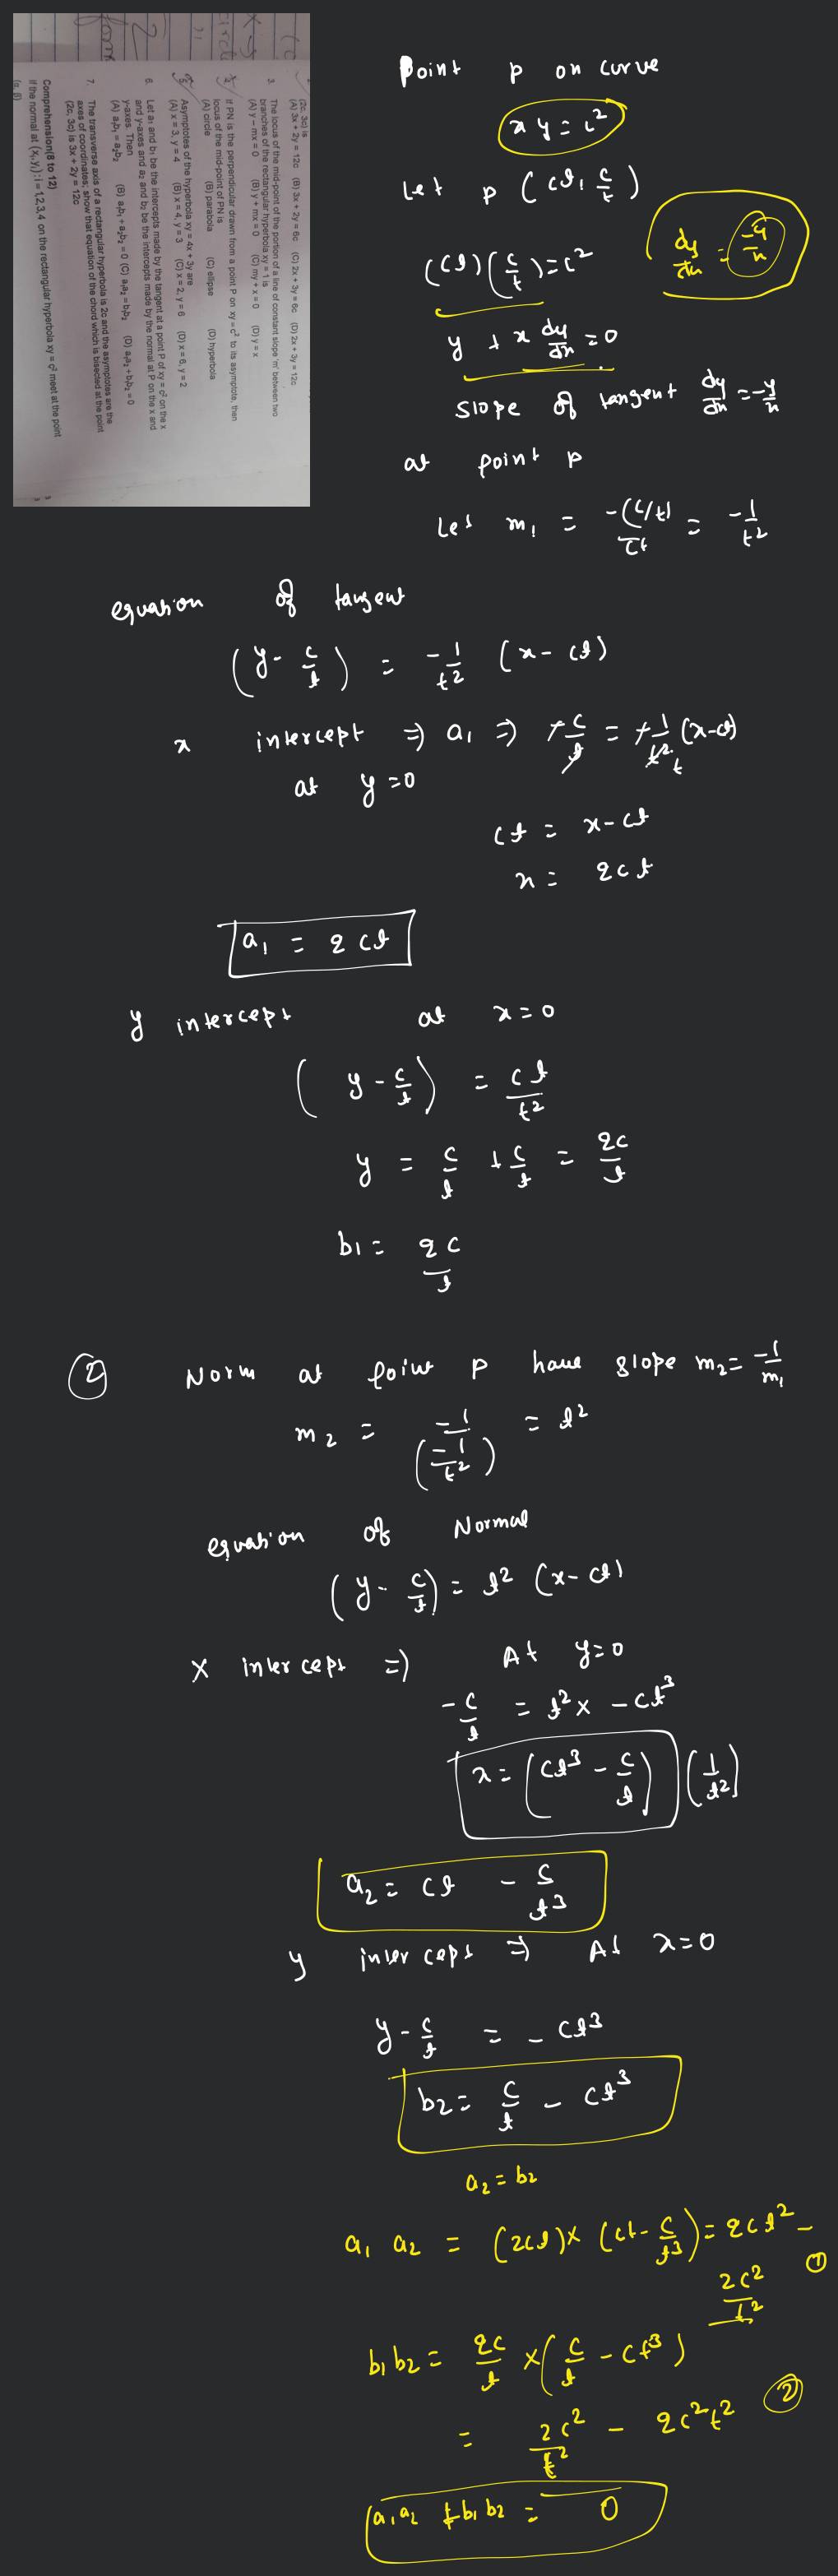 (2c, 3c) is
(A) 3x + 2y = 12c (B) 3x + 2y = 6c (C) 2x + 3y = 6c (D) 2x + 3y = 12c
3. The locus of the mid-point of the portion of a line of constant slope 'm' between two
branches of the rectangular hyperbola xy = 1 is
(A) y – mx = 0 (B) y + mx = 0 (C) my + x = 0 (D) y = x
If PN is the perpendicular drawn from a point P on xy = c² to its asymptote, then
locus of the mid-point of PN is
(A) circle (B) parabola (C) ellipse (D) hyperbola
Asymptotes of the hyperbola xy = 4x + 3y are
(A) x = 3, y = 4 (B) x = 4, y = 3 (C) x = 2, y = 6 (D) x = 6, y = 2
6. Let a₁ and b₁ be the intercepts made by the tangent at a point P of xy = c² on the x
and y-axes and a₂ and b₂ be the intercepts made by the normal at P on the x and
y-axes. Then
(A) a₁b₁ = a₂b₂ (B) a₁b₁ + a₂b₂ = 0 (C) a₁a₂ = b₁b₂ (D) a₁a₂ + b₁b₂ = 0
7. The transverse axis of a rectangular hyperbola is 2c and the asymptotes are the
axes of coordinates; show that equation of the chord which is bisected at the point
(2c, 3c) is 3x + 2y = 12c
Comprehension(8 to 12)
If the normal at (xᵢ,yᵢ); i = 1,2,3,4 on the rectangular hyperbola xy = c² meet at the point
(α, β)
Point p on curve
xy = c²
Let p (ct, c/t)
(ct)(c/t) = c²
dy/dx = -y/x
y + x dy/dx = 0
slope of tangent dy/dx = -y/x
at point p
Let m₁ = -(c/t)/ct = -1/t²
equation of tangent
(y - c/t) = -1/t² (x - ct)
x intercept ⇒ a₁ ⇒ +c/t = +1/t² (x-ct)
at y=0
ct = x - ct
x = 2ct
a₁ = 2ct
y intercept at x = 0
(y - c/t) = ct/t²
y = c/t + c/t = 2c/t
b₁ = 2c/t
② Norm at point p have slope m₂ = -1/m₁
m₂ = -1/(-1/t²) = t²
equation of Normal
(y - c/t) = t² (x - ct)
X intercept ⇒ At y=0
-c/t = t²x - ct³
x = (ct³ - c/t) (1/t²)
a₂ = ct - c/t³
y intercept ⇒ At x=0
y - c/t = - ct³
b₂ = c/t - ct³
a₂ = b₂
a₁ a₂ = (2ct) × (ct - c/t³) = 2ct² - 2c²/t² ①
b₁b₂ = 2c/t × (c/t - ct³)
= 2c²/t² - 2c²t² ②
a₁a₂ + b₁b₂ = 0